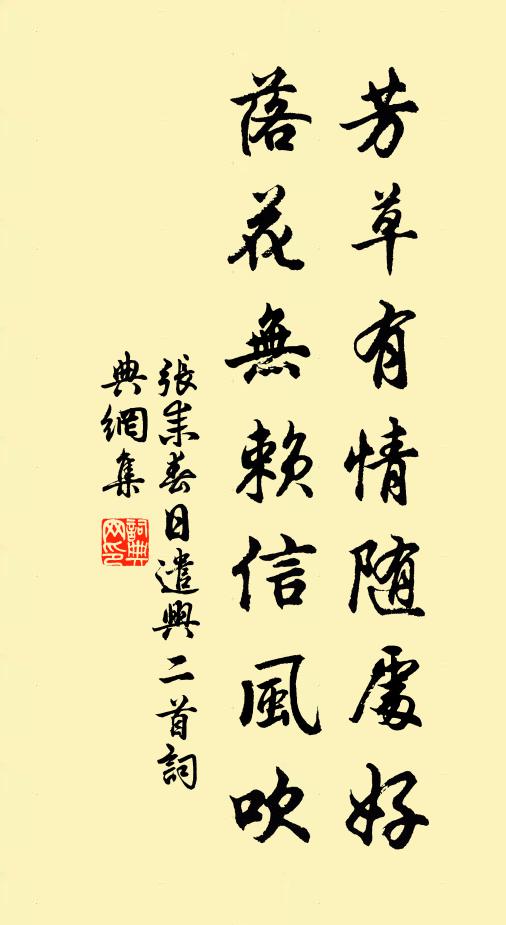 芳草有情随處好
落花無賴信風吹
張耒春日遣興二首詞
典網集
詞典
网印